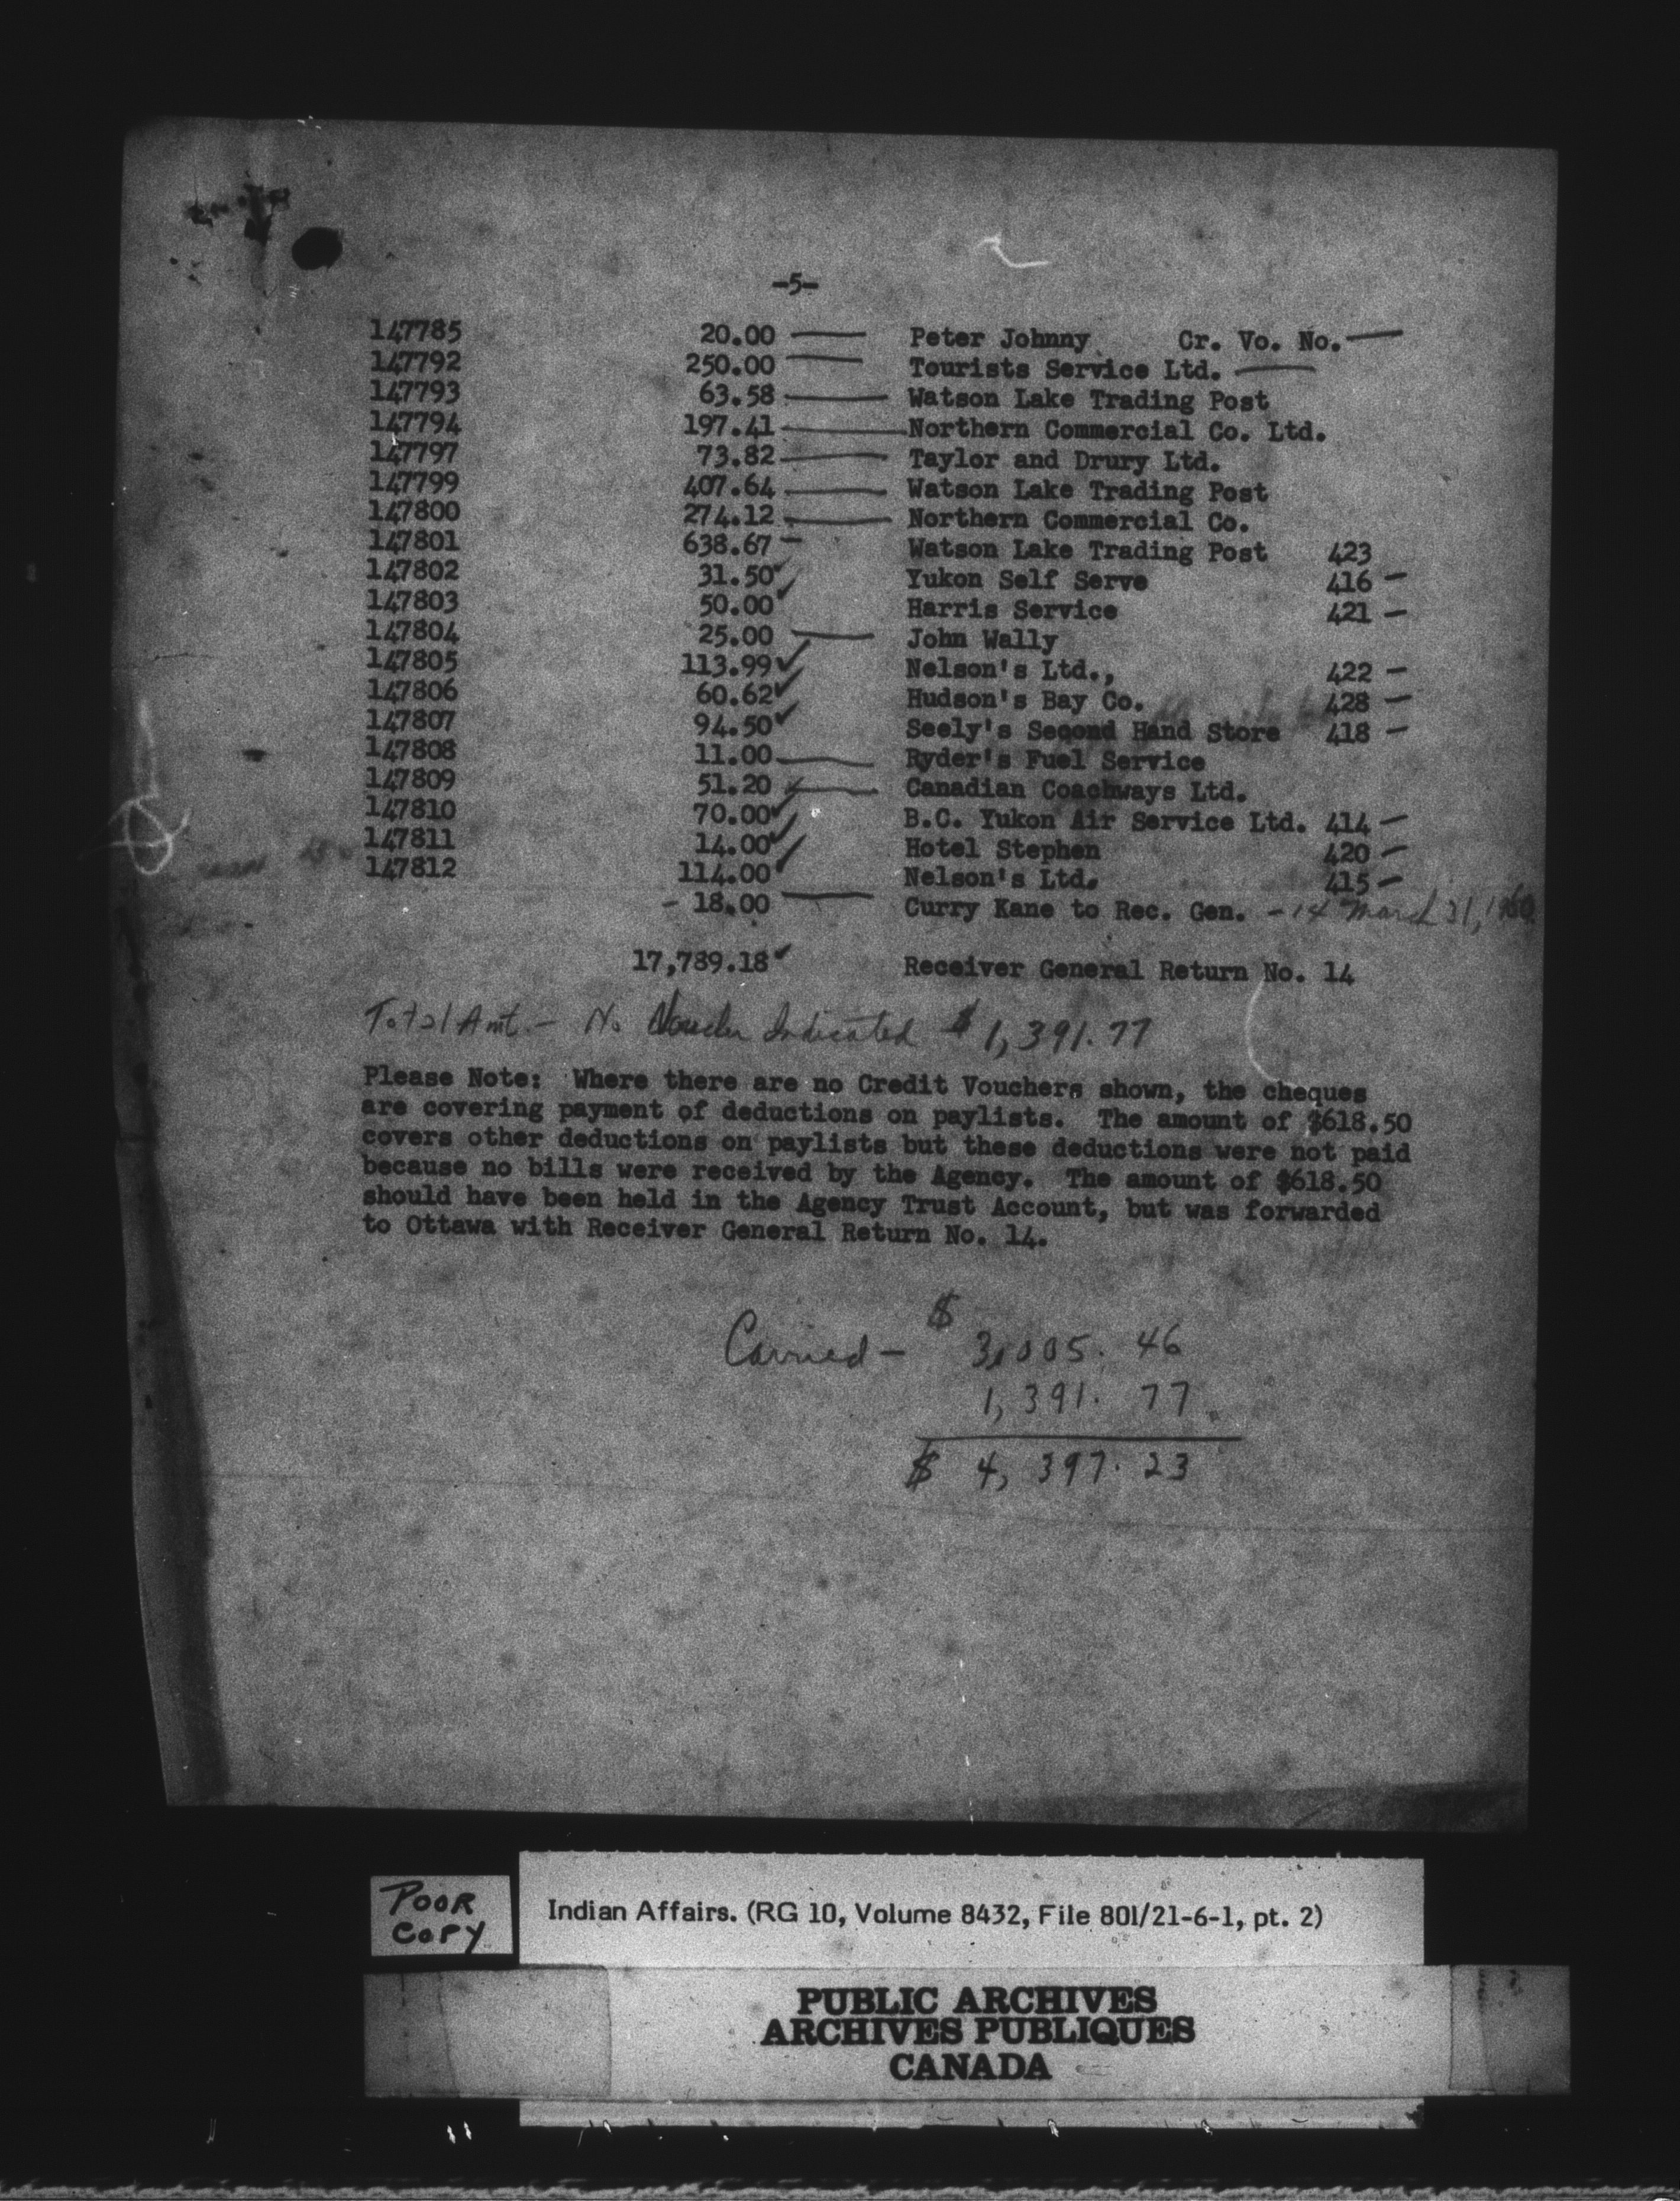 -5-
147785 20.00 — Peter Johnny Cr. Vo. No. —
147792 250.00 — Tourists Service Ltd. —
147793 63.58 — Watson Lake Trading Post
147794 197.41 — Northern Commercial Co. Ltd.
147797 73.82 — Taylor and Drury Ltd.
147799 407.64 — Watson Lake Trading Post
147800 274.12 — Northern Commercial Co.
147801 638.67 — Watson Lake Trading Post 423
147802 31.50 ✓ Yukon Self Serve 416 —
147803 50.00 ✓ Harris Service 421 —
147804 25.00 — John Wally
147805 113.99 ✓ Nelson's Ltd., 422 —
147806 60.62 ✓ Hudson's Bay Co. 428 —
147807 94.50 ✓ Seely's Second Hand Store 418 —
147808 11.00 — Ryder's Fuel Service
147809 51.20 — Canadian Coachways Ltd.
147810 70.00 ✓ B.C. Yukon Air Service Ltd. 414 —
147811 14.00 ✓ Hotel Stephen 420 —
147812 114.00 ✓ Nelson's Ltd. 415 —
- 18.00 — Curry Kane to Rec. Gen. - 14 March 31, 1960
17,789.18 ✓ Receiver General Return No. 14
Total Amt. - No Voucher Indicated $ 1,391.77
Please Note: Where there are no Credit Vouchers shown, the cheques
are covering payment of deductions on paylists. The amount of $618.50
covers other deductions on paylists but these deductions were not paid
because no bills were received by the Agency. The amount of $618.50
should have been held in the Agency Trust Account, but was forwarded
to Ottawa with Receiver General Return No. 14.
Carried - $ 3,005.46
1,391.77
$ 4,397.23
POOR
COPY
Indian Affairs. (RG 10, Volume 8432, File 801/21-6-1, pt. 2)
PUBLIC ARCHIVES
ARCHIVES PUBLIQUES
CANADA